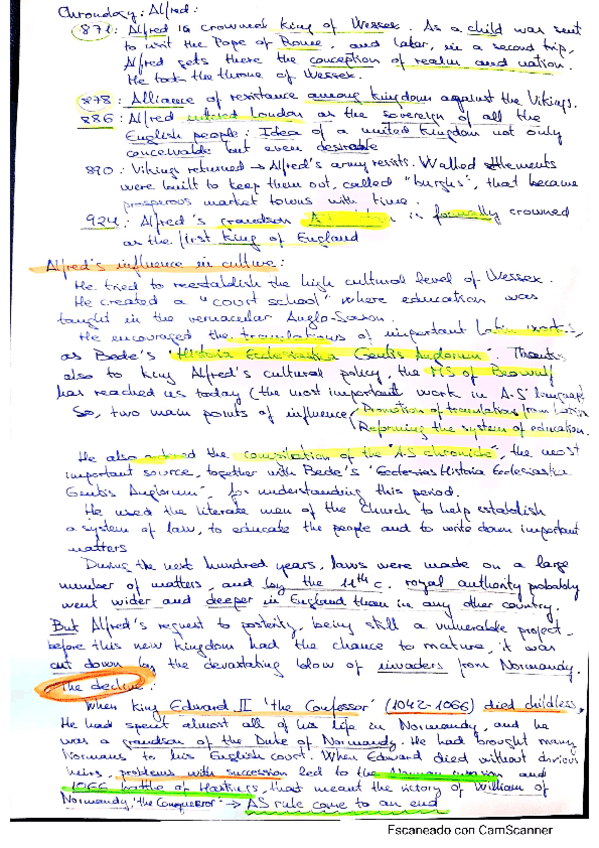 Chronology: Alfred:
871: Alfred is crowned king of Wessex. As a child was sent
to visit the Pope of Rome, and later, in a second trip,
Alfred gets there the conception of realm and nation.
He took the throne of Wessex.
878: Alliance of resistance among kingdom against the Vikings.
886: Alfred entered London as the sovereign of all the
English people: Idea of a united kingdom not only
conceivable but even desirable
890: Vikings returned → Alfred's army resists. Walled settlements
were built to keep them out, called "burghs", that became
prosperous market towns with time.
924: Alfred's grandson is formally crowned
as the first king of England
Alfred's influence in culture:
He tried to reestablish the high cultural level of Wessex.
He created a "court school" where education was
taught in the vernacular Anglo-Saxon.
He encouraged the translations of important Latin works,
as Bede's "Historia Ecclesiastica Gentis Anglorum". Thanks
also to King Alfred's cultural policy, the MS of Beowulf
has reached us today (the most important work in A-S language)
So, two main points of influence Promotion of translations from Latin
Reforming the system of education.
He also ordered the compilation of the "A.S chronicle", the most
important source, together with Bede's "Ecclesias Historia Ecclesiastica
Gentis Anglorum", for understanding this period.
He used the literate men of the Church to help establish
a system of law, to educate the people and to write down important
matters
During the next hundred years, laws were made on a large
number of matters, and by the 11th c. royal authority probably
went wider and deeper in England than in any other country.
But Alfred's request to posterity, being still a vulnerable project,
before this new kingdom had the chance to mature, it was
cut down by the devastating blow of invaders from Normandy.
The decline:
When king Edward II 'the Confessor' (1042-1066) died childless,
He had spent almost all of his life in Normandy, and he
was a grandson of the Duke of Normandy. He had brought many
Normans to his English court. When Edward died without obvious
heirs, problems with succession led to the Norman invasion and
1066 battle of Hastings, that meant the victory of William of
Normandy, 'the Conqueror' → AS rule came to an end
Escaneado con CamScanner